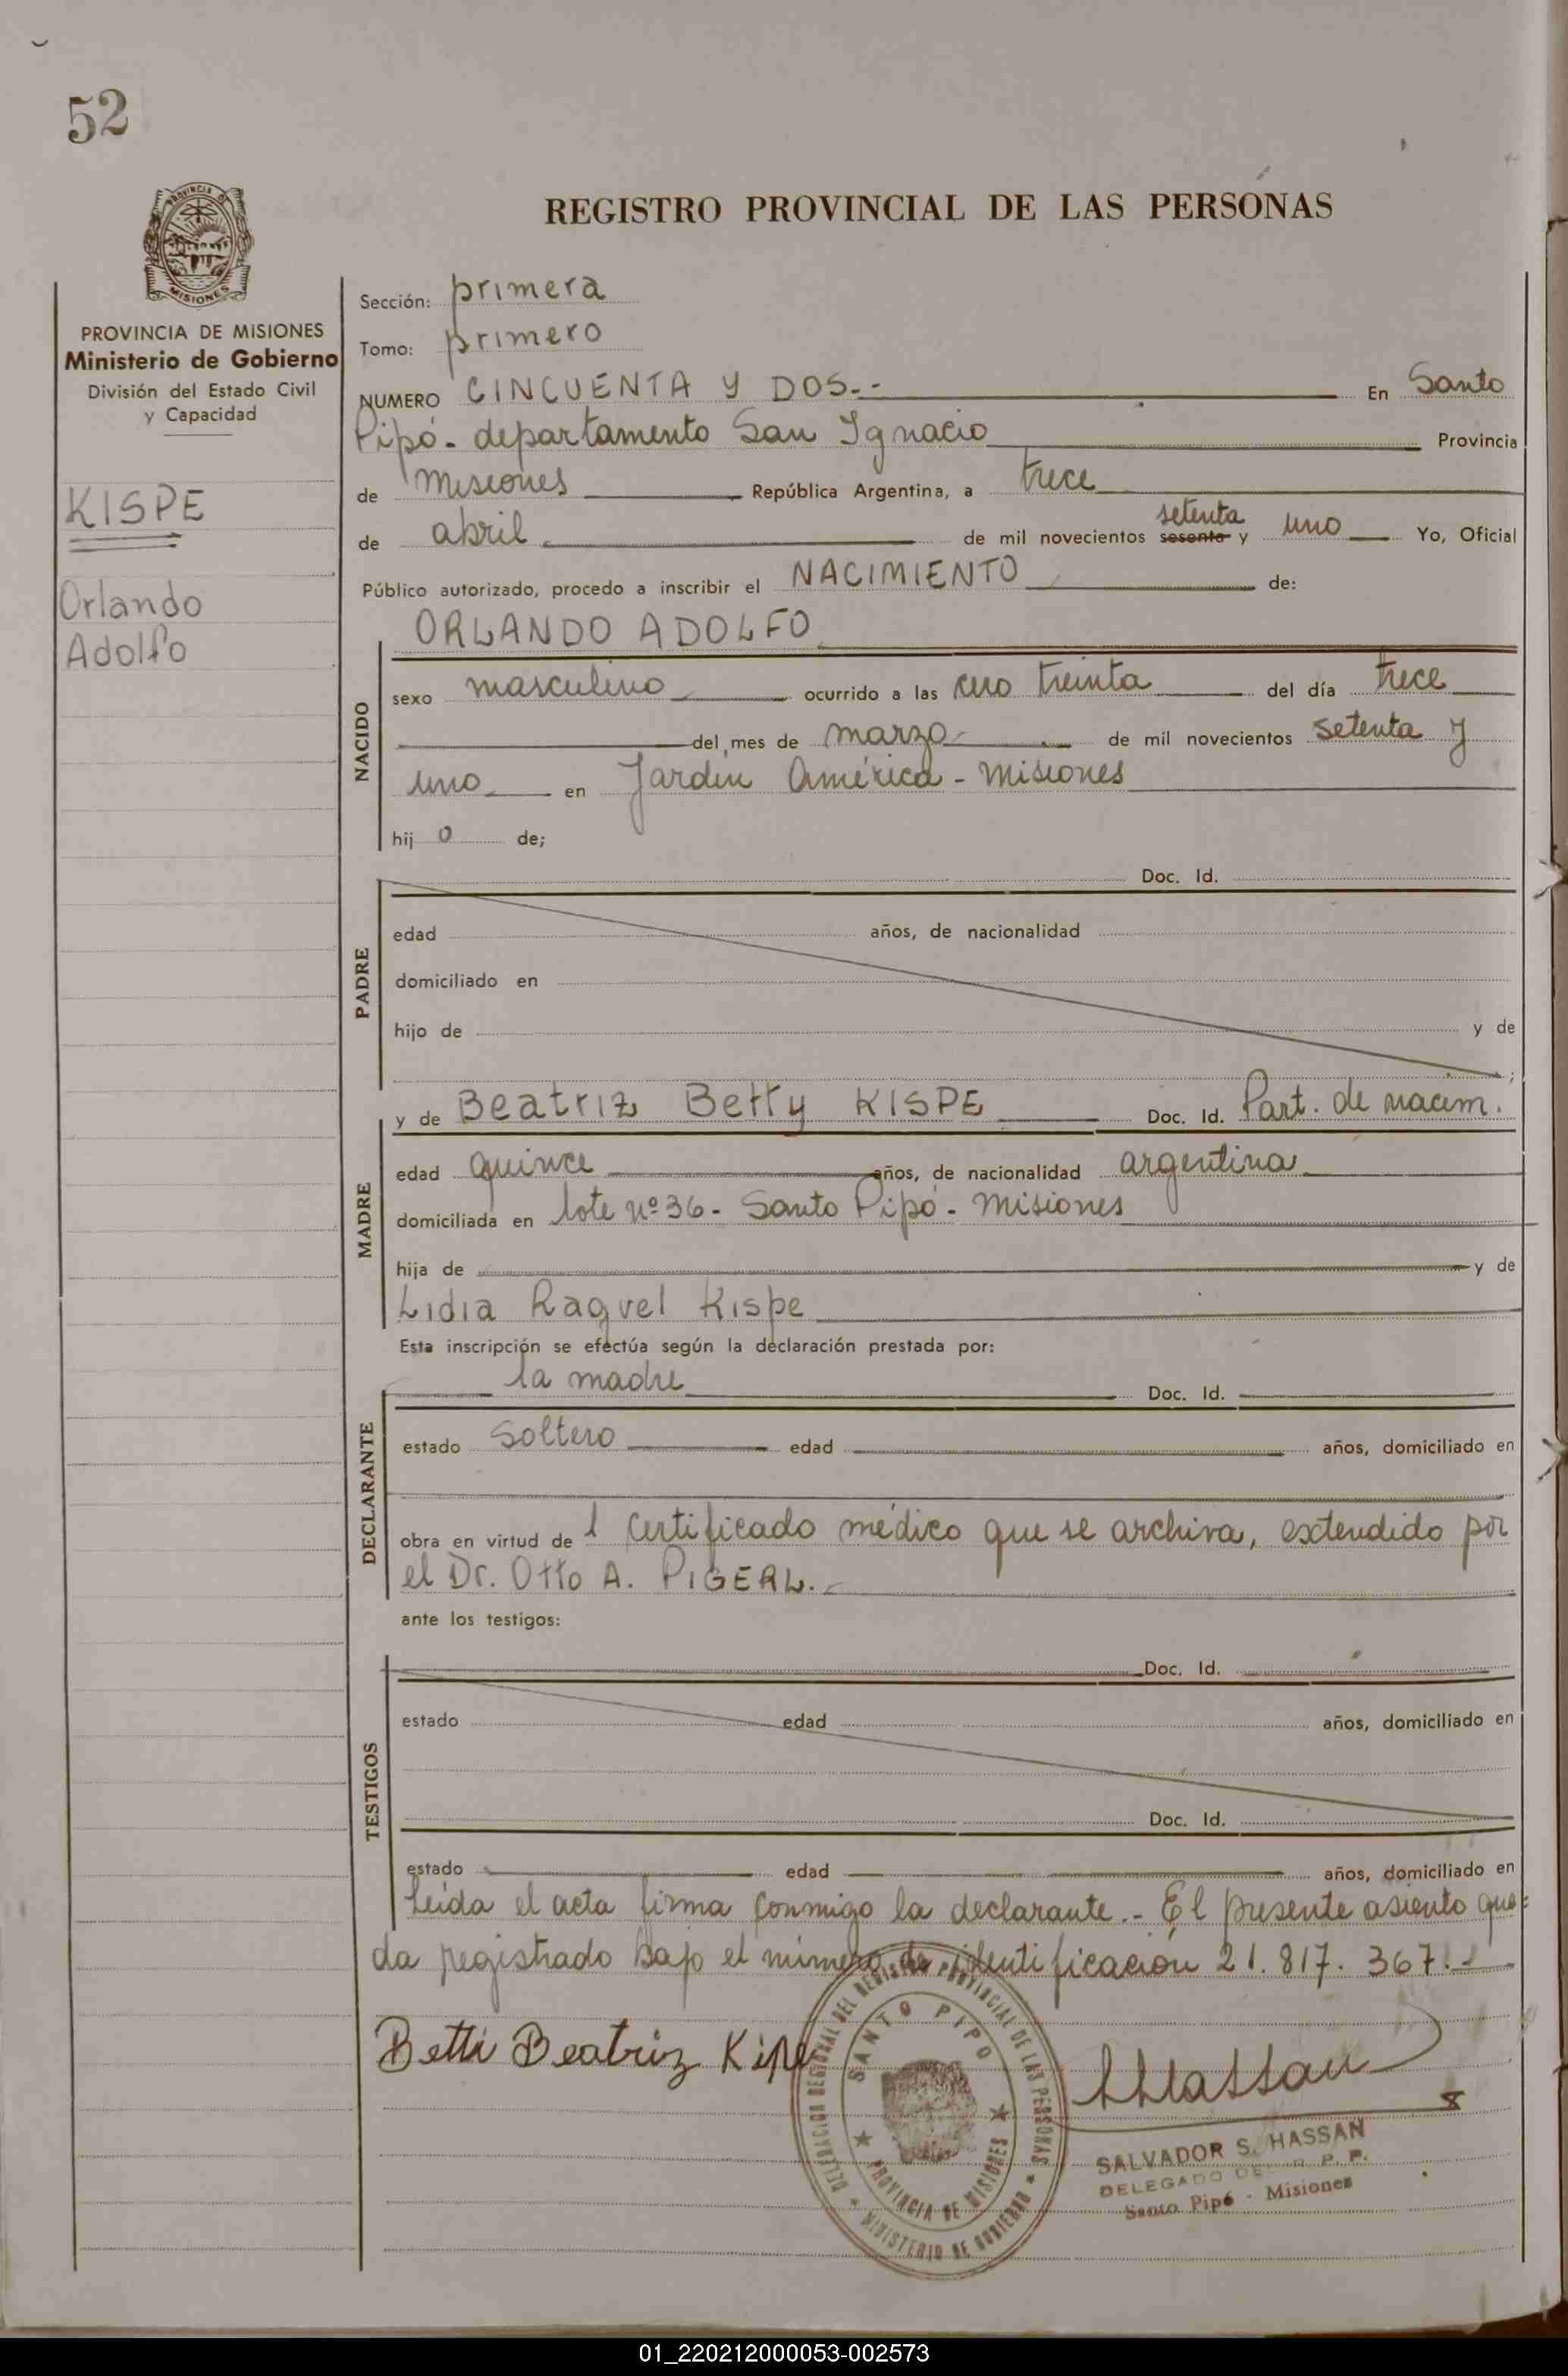 52
REGISTRO PROVINCIAL DE LAS PERSONAS
PROVINCIA DE MISIONES
Ministerio de Gobierno
División del Estado Civil
y Capacidad
KISPE
Orlando
Adolfo
Sección: primera
Tomo: primero
NUMERO CINCUENTA Y DOS.- En Santo
Pipó - departamento San Ignacio Provincia
de Misiones República Argentina, a trece
setenta
de abril de mil novecientos sesenta y uno Yo, Oficial
Público autorizado, procedo a inscribir el NACIMIENTO de:
NACIDO
ORLANDO ADOLFO
sexo masculino ocurrido a las cero treinta del día trece
del mes de marzo de mil novecientos setenta y
uno en Jardín América - Misiones
hij o de;
PADRE
Doc. Id.
edad años, de nacionalidad
domiciliado en
hijo de y de
;
MADRE
y de Beatriz Betty KISPE Doc. Id. Part. de nacim.
edad quince años, de nacionalidad argentina
domiciliada en lote nº 36 - Santo Pipó - Misiones
hija de y de
Lidia Raquel Kispe
Esta inscripción se efectúa según la declaración prestada por:
DECLARANTE
la madre Doc. Id.
estado soltero edad años, domiciliado en
obra en virtud de l certificado médico que se archiva, extendido por
el Dr. Otto A. PIGERL.-
ante los testigos:
TESTIGOS
Doc. Id.
estado edad años, domiciliado en
Doc. Id.
estado edad años, domiciliado en
Leída el acta firma conmigo la declarante.- El presente asiento que=
da registrado bajo el número de identificación 21.817.367.-
Betti Beatriz Kispe
DELEGACION REGIONAL DEL REGISTRO PROVINCIAL DE LAS PERSONAS
MINISTERIO DE GOBIERNO
SANTO PIPO
PROVINCIA DE MISIONES
SALVADOR S. HASSAN
DELEGADO DEL R. P. P.
Santo Pipó - Misiones
01_220212000053-002573